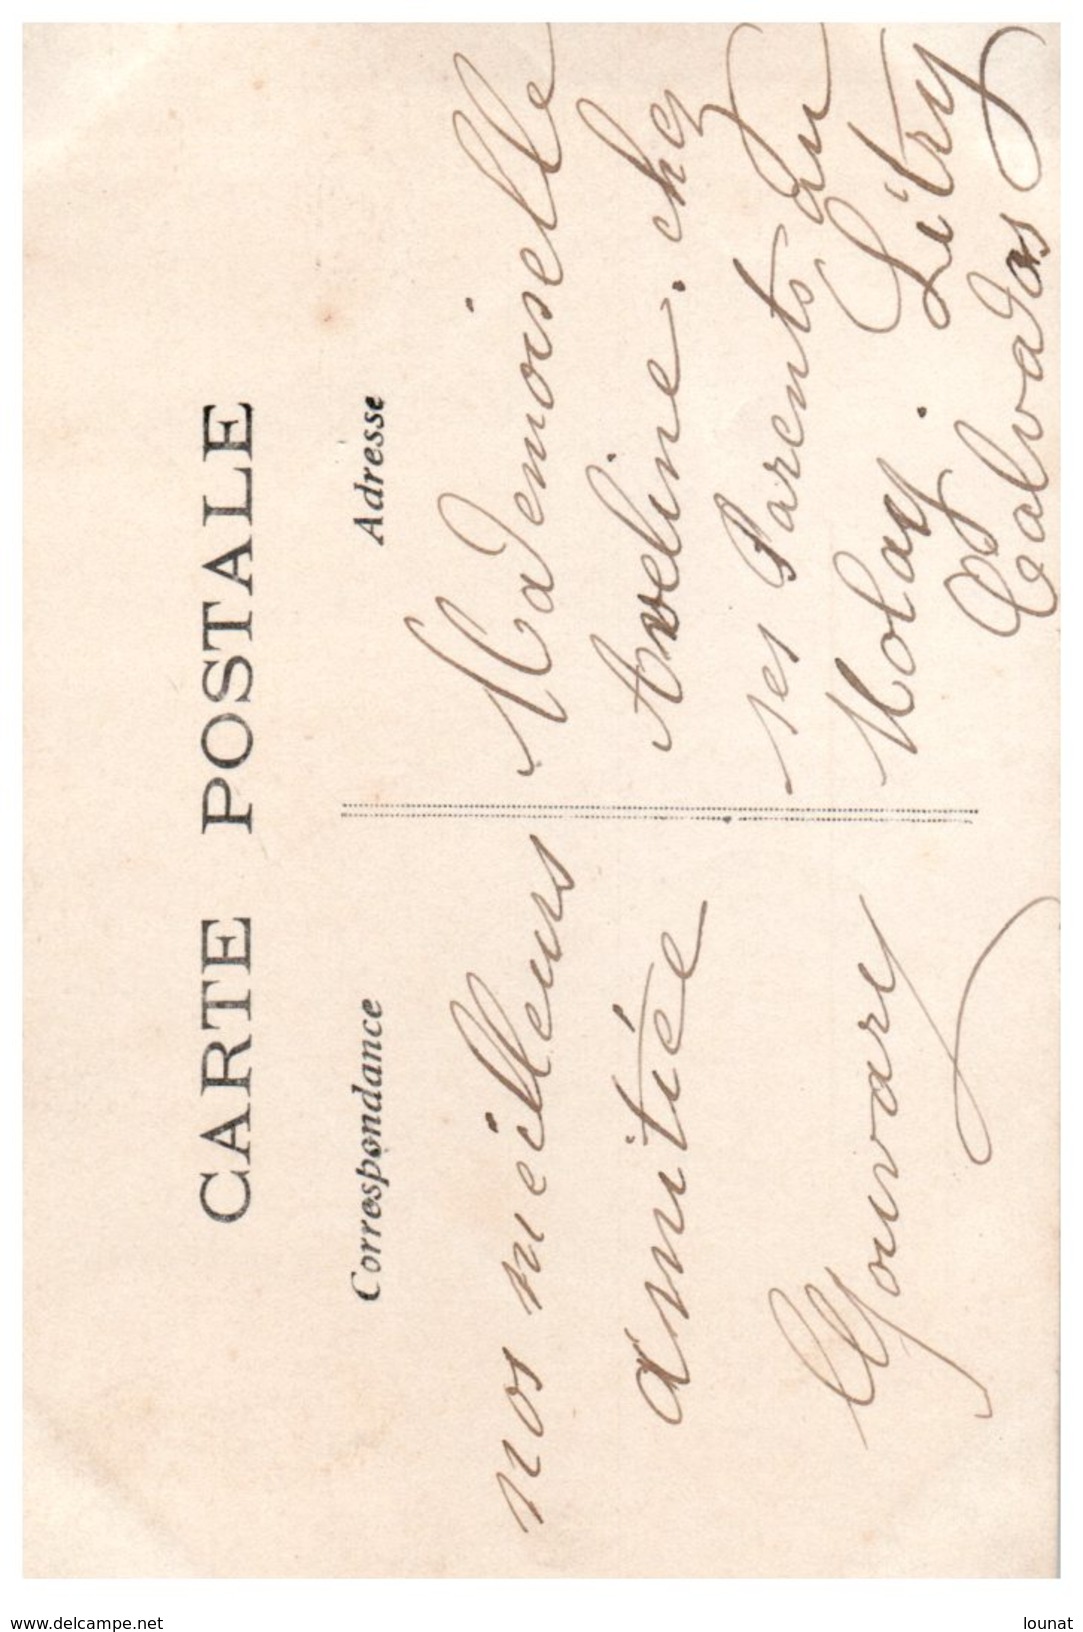 CARTE POSTALE
Correspondance
nos meilleurs
amitiée
Adresse
Mademoiselle
Aveline. chez
ses Parents au
Molay. Litry
Calvados
www.delcampe.net
lounat